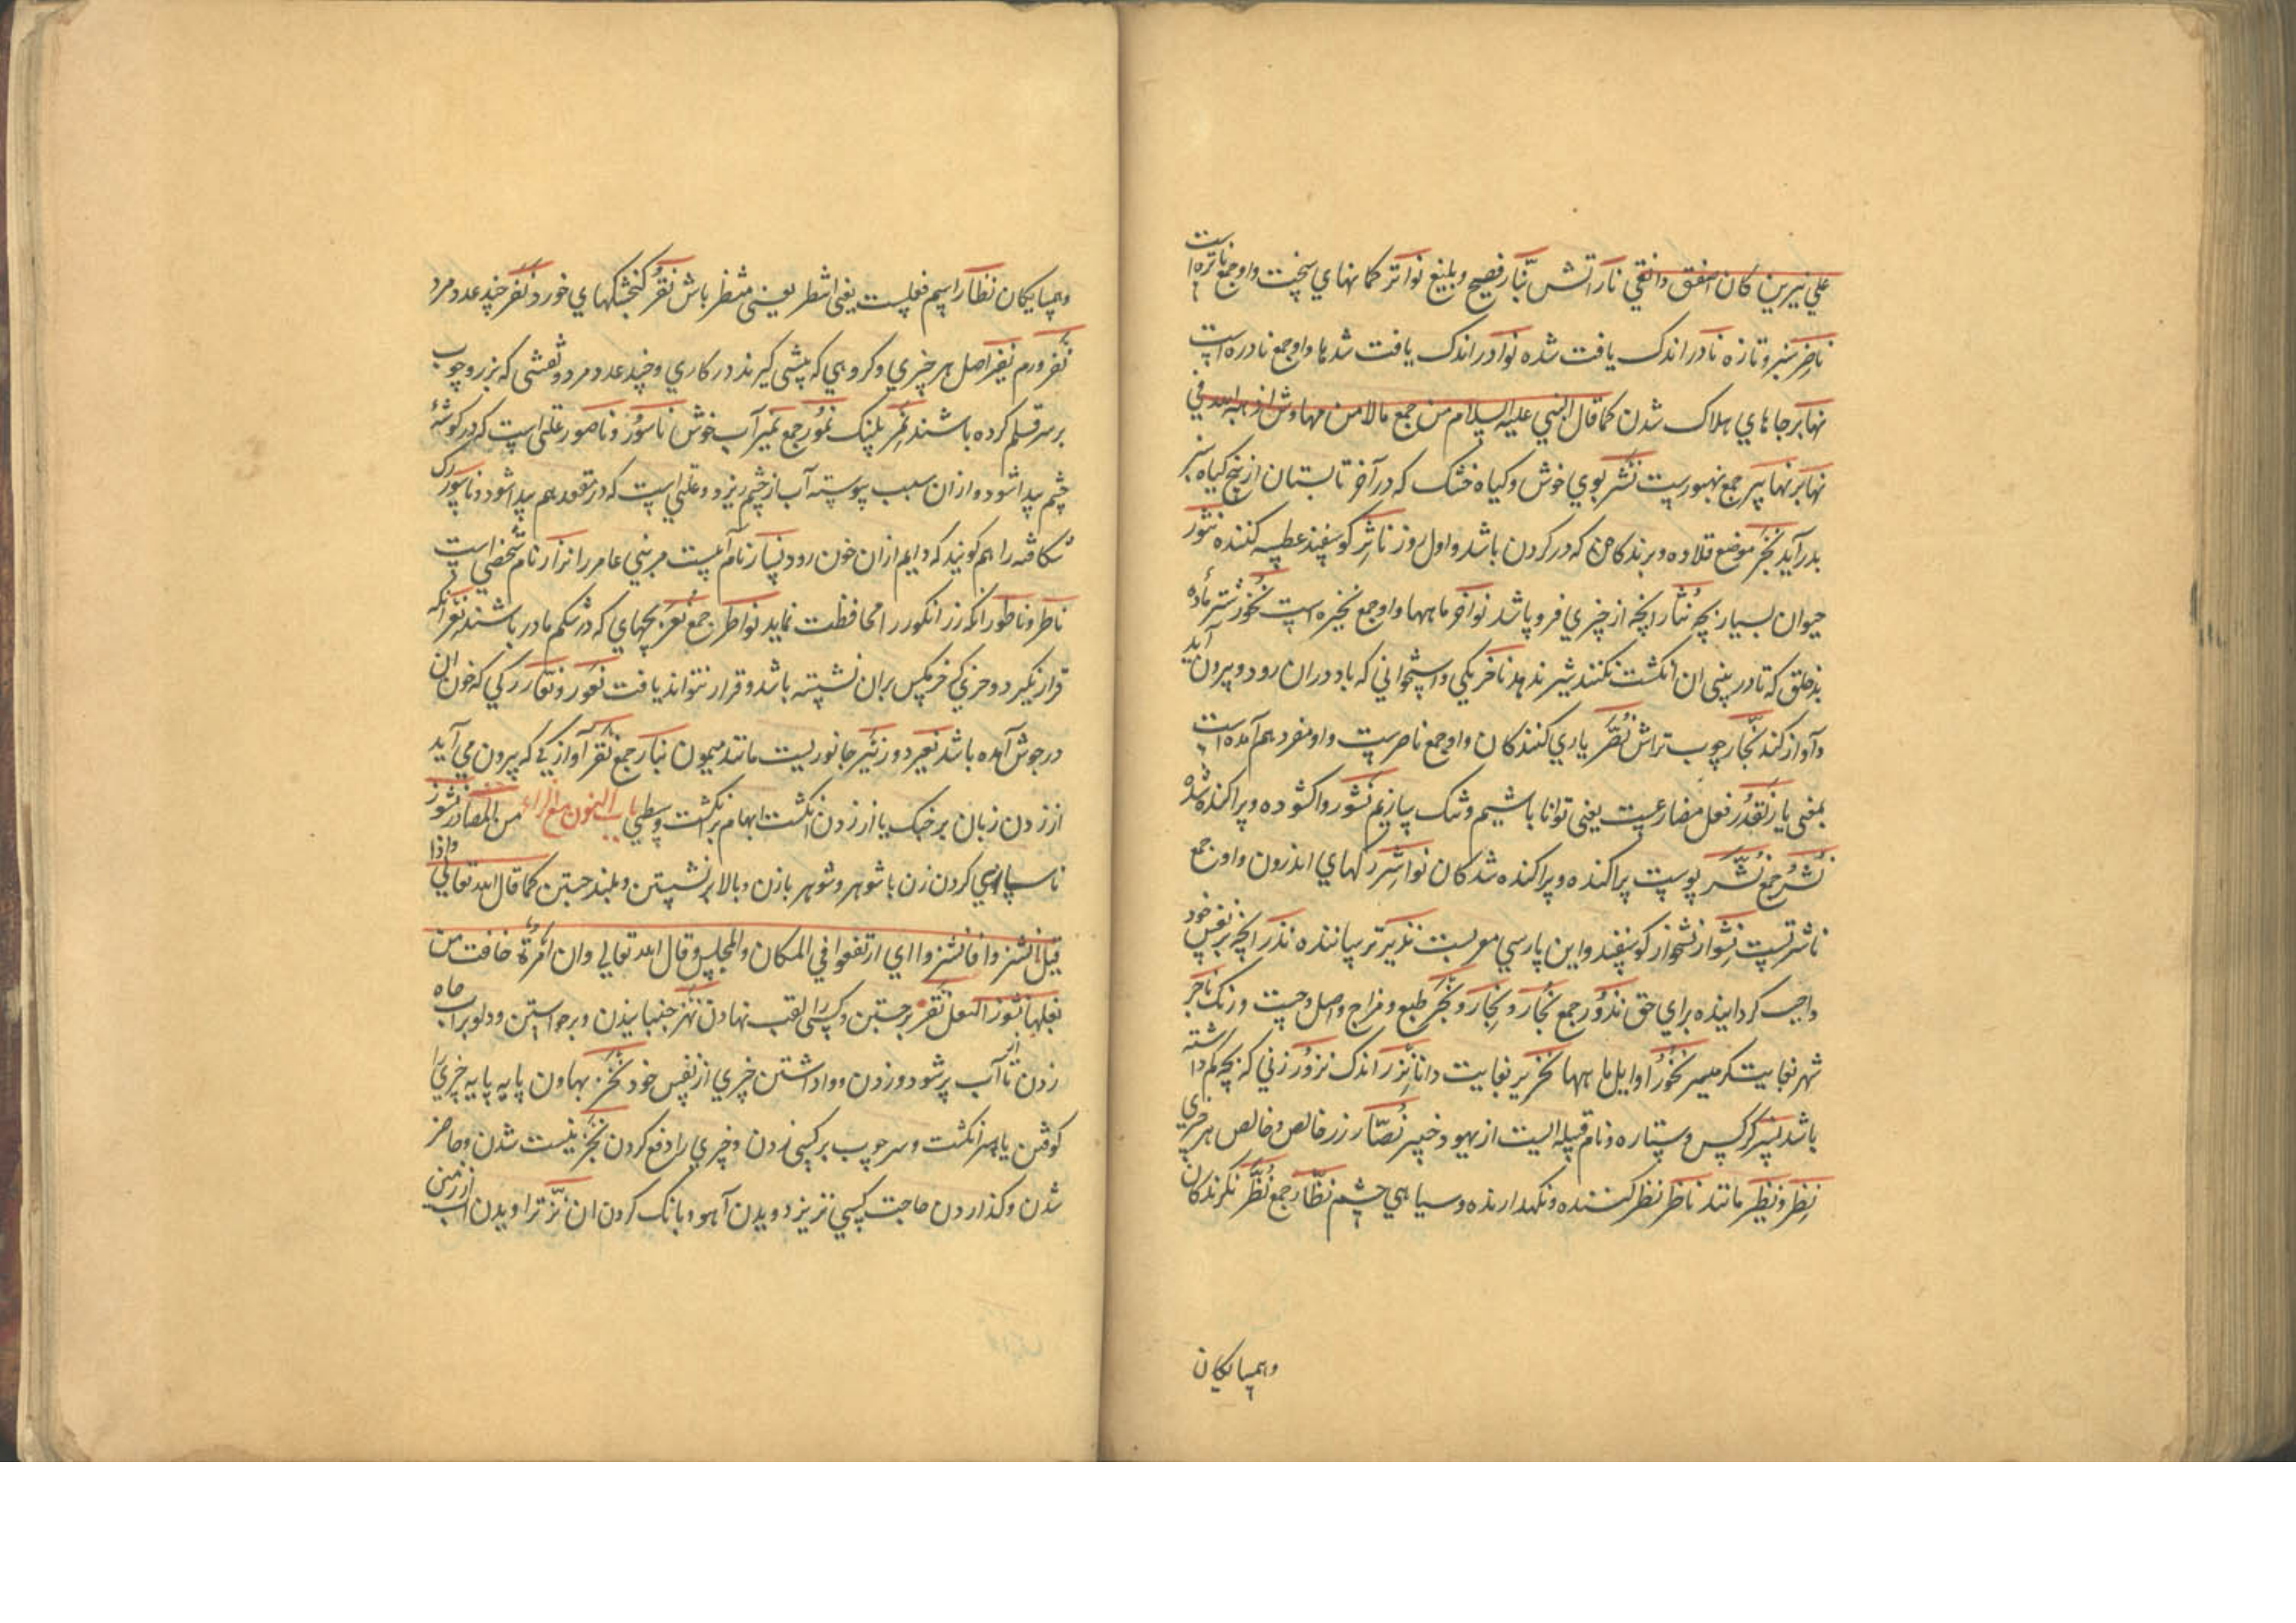 علي نيرين كان اصفق و انقي نار اتش نبار فصيح و بليغ نواتر كمانهاي سخت و او جمع ناتره است
ناضر سبز و تازه نادر اندك يافت شده نوادر اندك يافت شدها و او جمع نادره است
نهابر جاهاي هلاك شدن كما قال النبي عليه السلام من جمع مالا من مهاوش اذهبه الله في
نهابر نهابير جمع نهبورست نشر بوي خوش و كياه خشك كه در آخر تابستان از بيخ كياه سبز
بدر آيد نحر موضع قلاده و برند كاهن كه در كردن باشد و اول روز ناثر كوسفند عطسه كننده نثور
حيوان بسيار بچه نثار انچه از چيزي فرو پاشد نواحر ماهها و او جمع نحيره است نخور شتر ماده
بدخلق كه تا در بيني ان انكشت نكنند شير ندهد ناخر يكي و استخواني كه باد دران رود و بيرون آيد
و آواز كند نجار چوب تراش نصر ياري كنندكان و او جمع ناصرست و او مفرد هم آمده است
بمعني يار نقدر فعل مضارعست يعني توانا باشيم و تنك سازيم نشور واكشوده و پراكنده شده
نشر جمع نشر پوست پراكنده و پراكنده شدكان نواشر ركهاي اندرون و اون جمع
ناشرتست نشوار نشخوار كوسفند و اين پارسي معربست نذير ترساننده نذر انچه بر نفس خود
واجب كرداننده براي حق نذور جمع نجار و نجار و نجر طبع و مزاج و اصل و حسب و رنك ناجر
شهر بغايت كرم سير نحور اوايل ماهها نحرير بغايت دانا نزر اندك نزور زني كه بچه كم داشته
باشد نسر كركس و ستاره و نام قبيله ايست از يهود خيبر نضار زر خالص و خالص هر چيزي
نظر و نظير مانند ناظر نظر كننده و نكهدارنده و سياهي چشم نظار جمع نظر نكرندكان
و همسايكان
و همسايكان نظار اسم فعلست يعني انتظر يعني منتظر باش نغر كنجشكهاي خورد نفر چند عدد مرد
نفر ورم نفير اصل هر چيزي و كروهي كه پيشي كيرند در كاري و چند عدد مرد و نقشي كه بر رو چوب
بر سر قلم كرده باشند نمر پلنك نمور جمع نمير آب خوش ناسور و ناصور علتي است كه در كوشۀ
چشم پيدا شود و ازان سبب پيوسته آب از چشم ريزد و علتي است كه در مقعد هم پيدا شود و ناسور رك
شكافته را هم كويند كه دايم ازان خون رود نسار نام آبيست مر بني عامر را نزار نام شخصي است
ناطر و ناطور انكه رز انكور را محافظت نمايد نواطر جمع نعر بچهاي كه در شكم مادر باشند نعر انكه
قرار نكيرد و خري كه خر مكس بران نشسته باشد و قرار نتواند يافت نعور و نعار ركي كه خون ان
در جوش آمده باشد نعير دور نئير جانوريست مانند ميمون نبار جمع نقر آوازي كه بيرون مي آيد
از زدن زبان بر خنك يا از زدن انكشت ابهام بر انكشت وسطي باب النون مع الزاء من المصادر نشوز
ناسپاسي كردن زن با شوهر و شوهر با زن و بالا بر نشستن و بلند جستن كما قال الله تعالي و اذا
قيل انشزوا فانشزوا اي ارتفعوا في المكان و المجلس و قال الله تعالي و ان امرأة خافت من
بعلها نشوزا النعل نقز بر جستن و كسي را لقب نهادن نهز جنبانيدن و برخواستن و دلو بر آب چاه
زدن تا از آب پر شود و زدن و واداشتن چيزي از نفس خود نحز بهاون پايه پايه چيزي را
كوفتن يا بسر انكشت و سر چوب بر كسي زدن و چيزي را دفع كردن نجز نيست شدن و حاضر
شدن و كذاردن حاجت كسي نزيز دويدن آهو و بانك كردن ان نز تراويدن آب از زمين